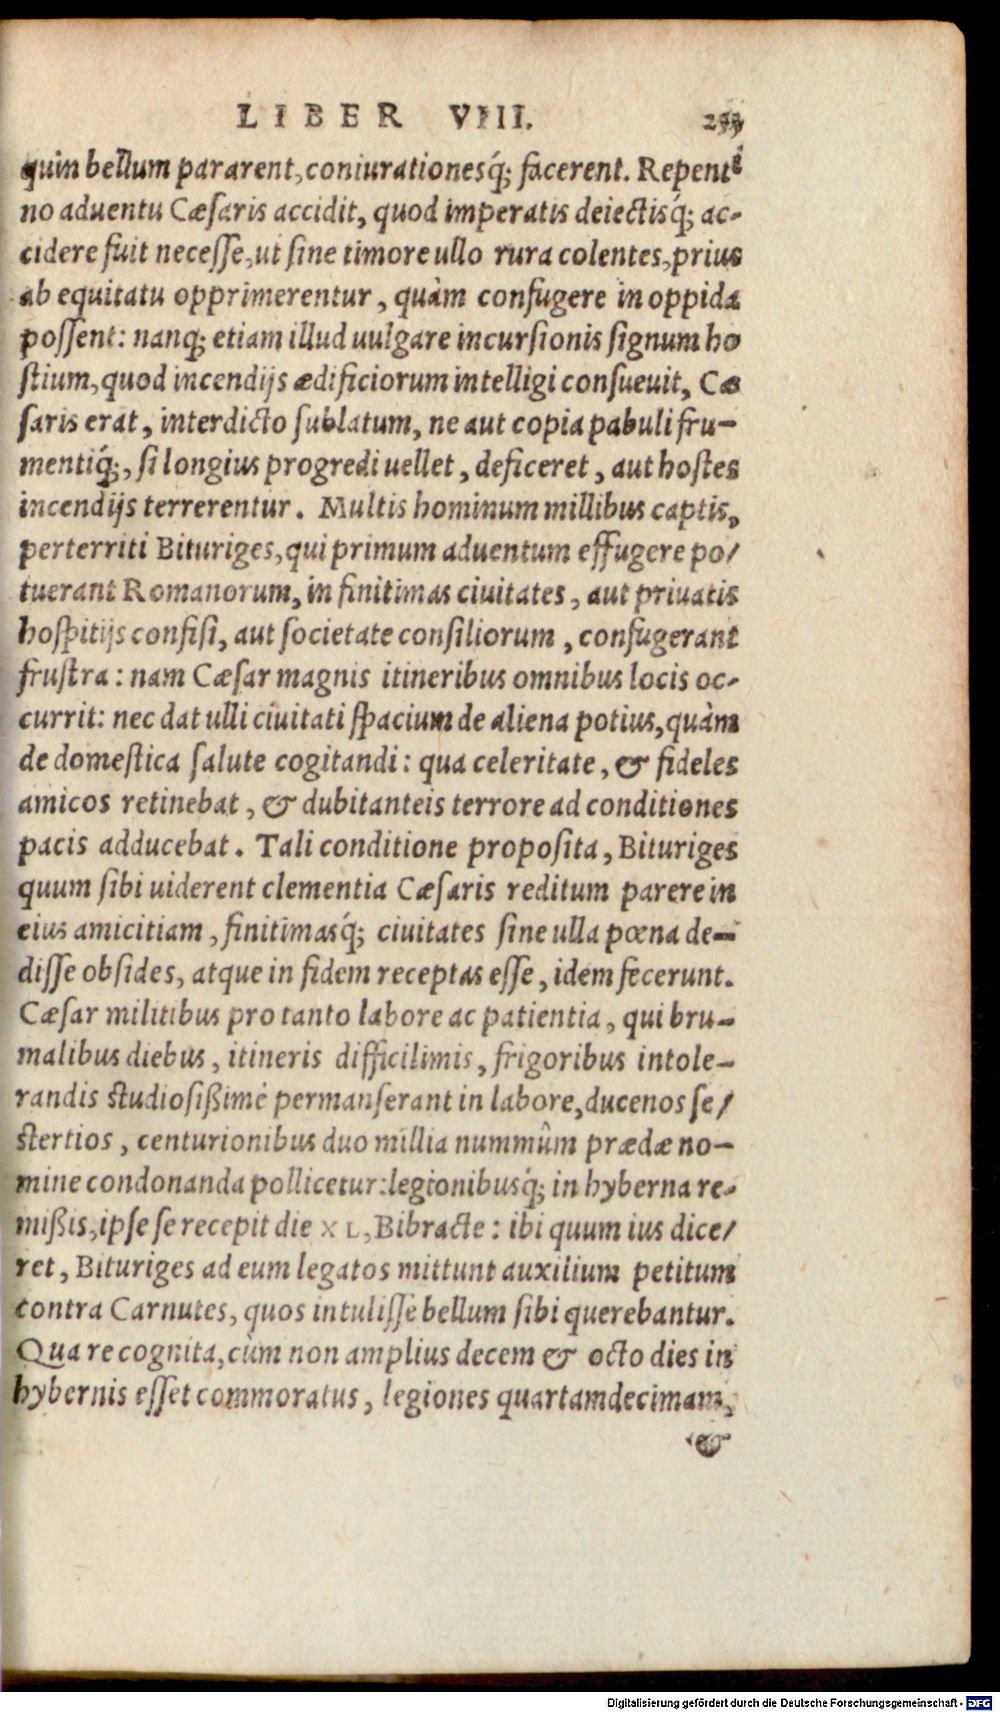 LIBER VIII.
quin bellum pararent, coniurationesq́; facerent. Repenti
no aduentu Cæsaris accidit, quod imperatis deiectisq́; ac-
cidere fuit necesse, ut sine timore ullo rura colentes, prius
ab equitatu opprimerentur, quàm confugere in oppida
possent: nanq; etiam illud uulgare incursionis signum ho
stium, quod incendijs ædificiorum intelligi consueuit, Cæ
saris erat, interdicto sublatum, ne aut copia pabuli fru-
mentiq́;, si longius progredi uellet, deficeret, aut hostes
incendijs terrerentur. Multis hominum millibus captis,
perterriti Bituriges, qui primum aduentum effugere po/
tuerant Romanorum, in finitimas ciuitates, aut priuatis
hospitijs confisi, aut societate consiliorum, confugerant
frustra: nam Cæsar magnis itineribus omnibus locis oc-
currit: nec dat ulli ciuitati spacium de aliena potius, quàm
de domestica salute cogitandi: qua celeritate, & fideles
amicos retinebat, & dubitanteis terrore ad conditiones
pacis adducebat. Tali conditione proposita, Bituriges
quum sibi uiderent clementia Cæsaris reditum parere in
eius amicitiam, finitimasq́; ciuitates sine ulla pœna de-
disse obsides, atque in fidem receptas esse, idem fecerunt.
Cæsar militibus pro tanto labore ac patientia, qui bru-
malibus diebus, itineris difficilimis, frigoribus intole-
randis studiosißimè permanserant in labore, ducenos se/
stertios, centurionibus duo millia nummûm prædæ no-
mine condonanda pollicetur: legionibusq́; in hyberna re-
mißis, ipse se recepit die XL, Bibracte: ibi quum ius dice/
ret, Bituriges ad eum legatos mittunt auxilium petitum
contra Carnutes, quos intulisse bellum sibi querebantur.
Qua re cognita, cùm non amplius decem & octo dies in
hybernis esset commoratus, legiones quartamdecimam,
&
Digitalisierung gefördert durch die Deutsche Forschungsgemeinschaft - DFG